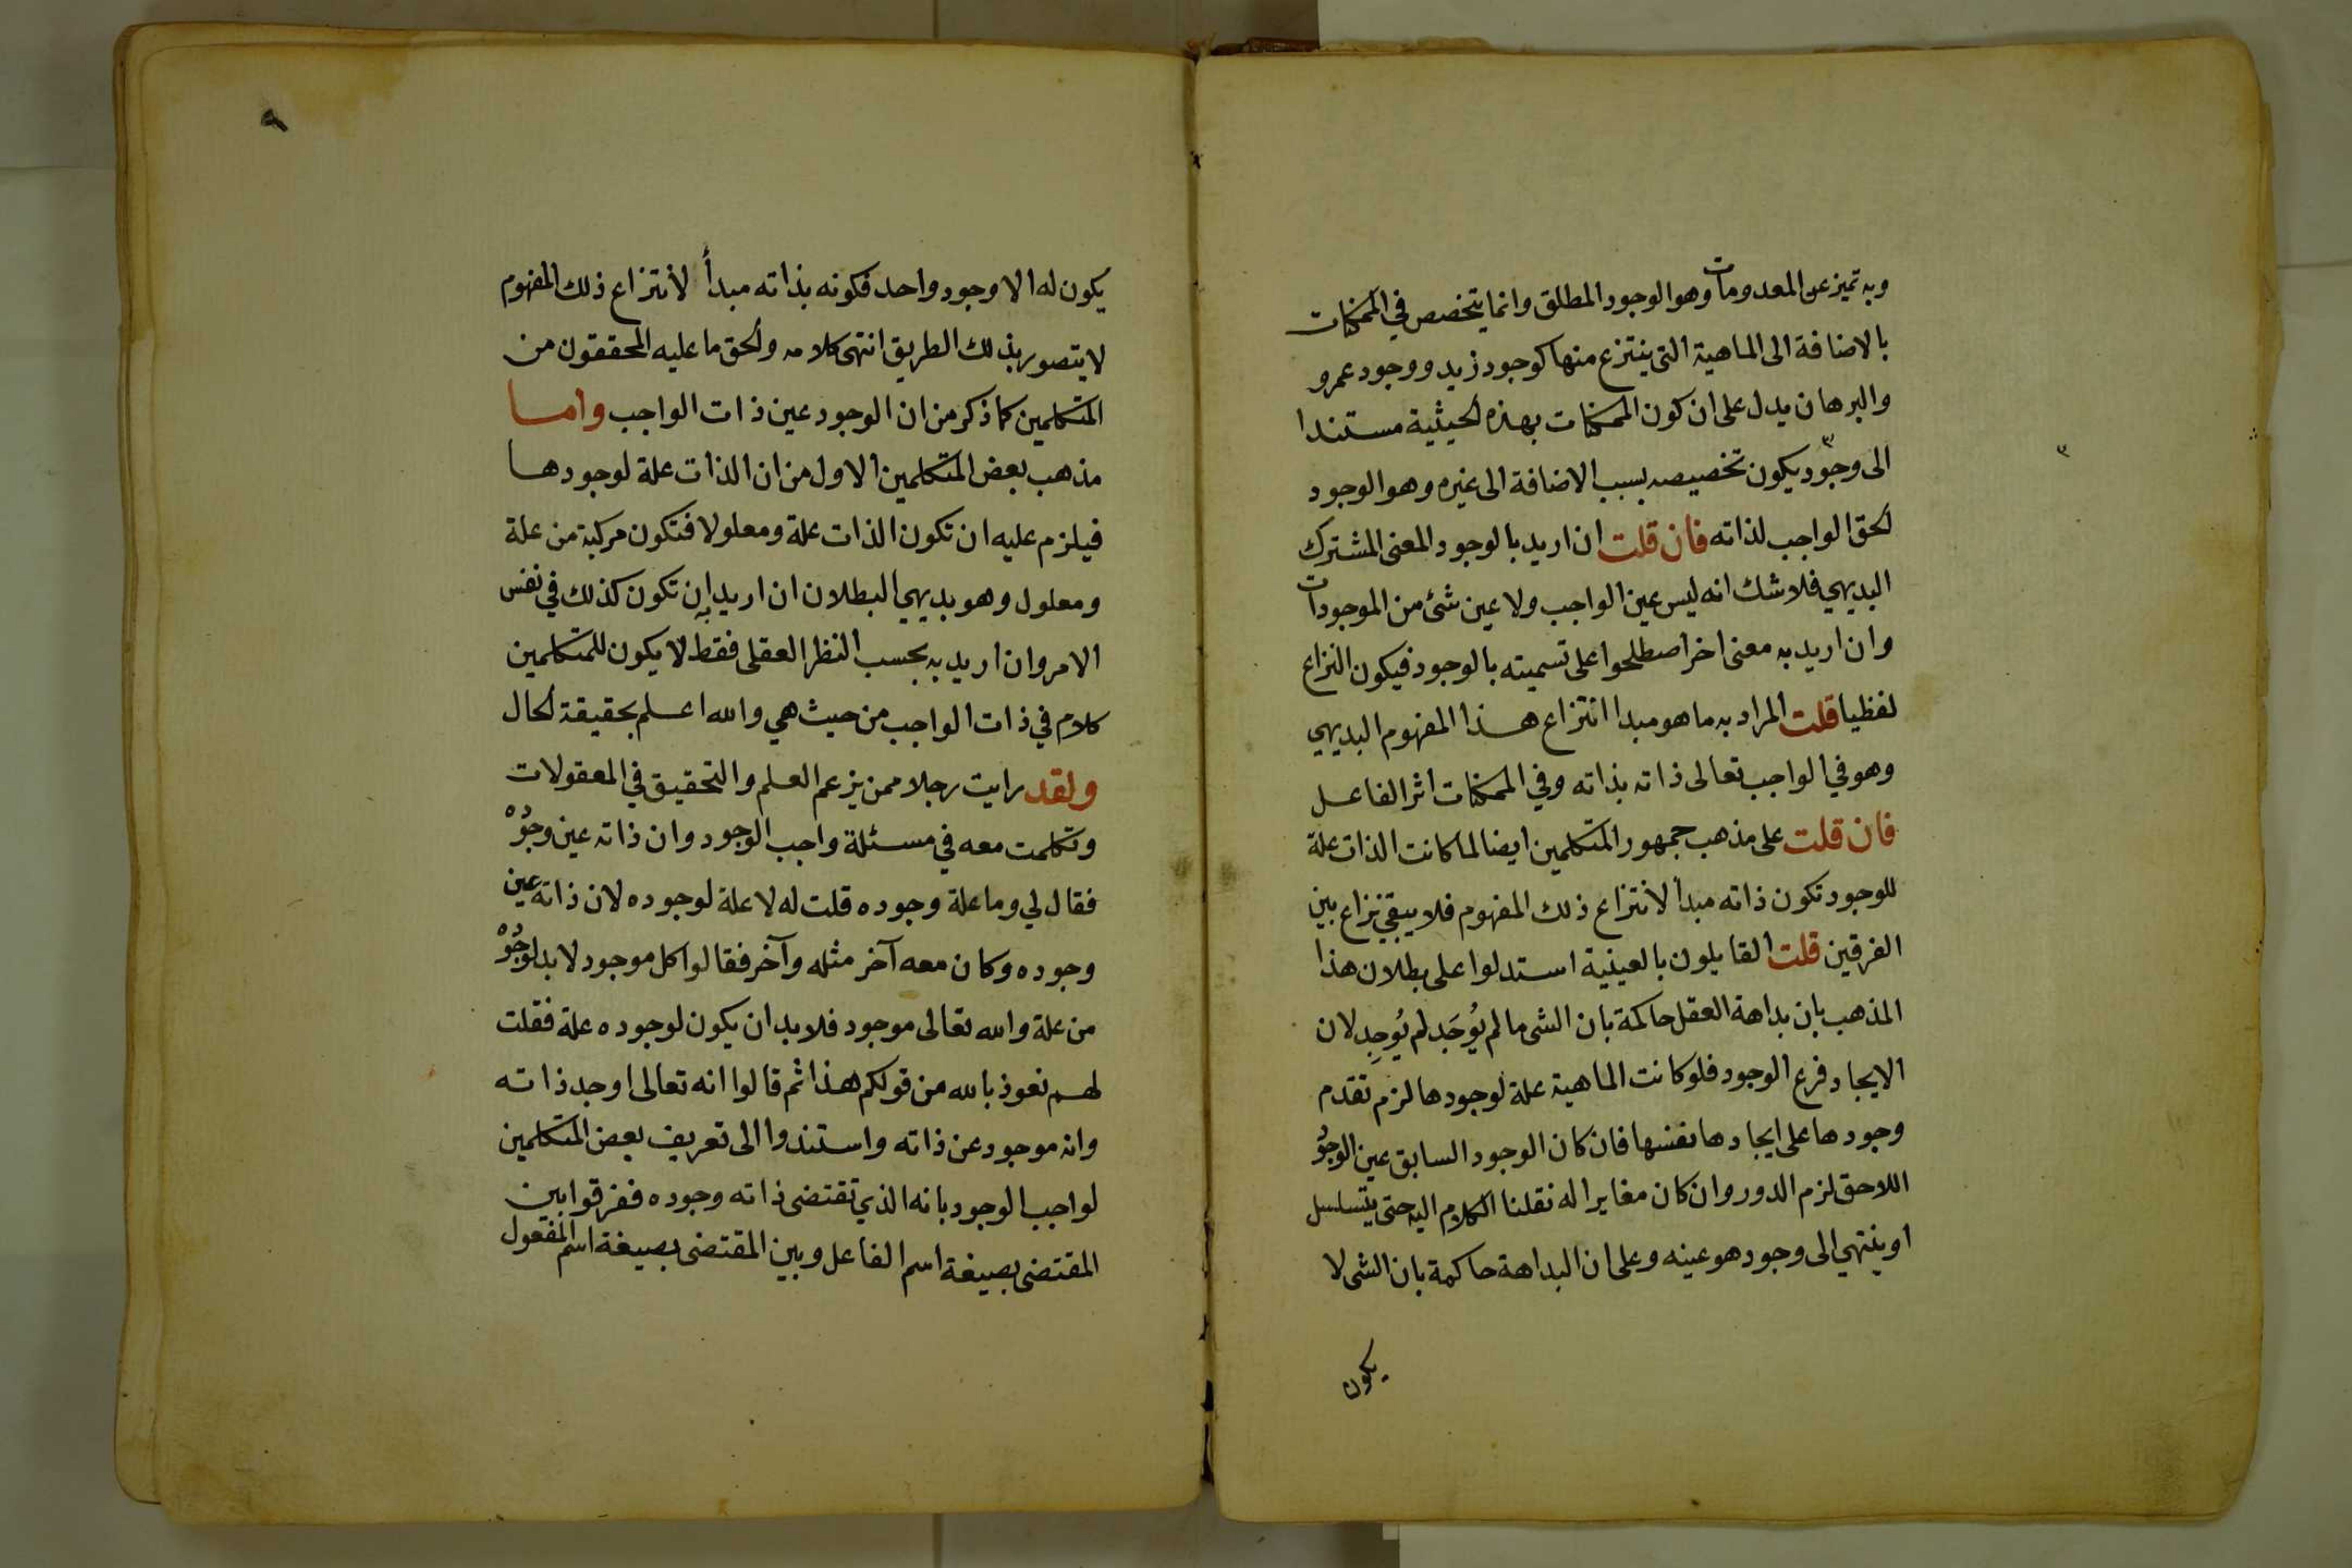 وبه تميز عن المعدومات وهو الوجود المطلق وانما يتخصص في الممكنات
بالاضافة الى الماهية التى ينتزع منها كوجود زيد ووجود عمرو
والبرهان يدل على ان كون الممكنات بهذه الحيثية مستندا
الى وجود يكون تخصيصه بسبب الاضافة الى غيره وهو الوجود
الحق الواجب لذاته فان قلت ان اريد بالوجود المعنى المشترك
البديهي فلا شك انه ليس عين الواجب ولا عين شئ من الموجودات
وان اريد به معنى اخر اصطلحوا على تسميته بالوجود فيكون النزاع
لفظيا قلت المراد به ما هو مبدا انتزاع هذا المفهوم البديهي
وهو في الواجب تعالى ذاته بذاته وفي الممكنات اثر الفاعل
فان قلت على مذهب جمهور المتكلمين ايضا لما كانت الذات علة
للوجود تكون ذاته مبدأ لانتزاع ذلك المفهوم فلا يبقى نزاع بين
الفرقين قلت القايلون بالعينية استدلوا على بطلان هذا
المذهب بان بداهة العقل حاكمة بان الشى ما لم يُوجَد لم يُوجِد لان
الايجاد فرع الوجود فلو كانت الماهية علة لوجودها لزم تقدم
وجودها على ايجادها نفسها فان كان الوجود السابق عين الوجود
اللاحق لزم الدور وان كان مغايرا له نقلنا الكلام اليه حتى يتسلسل
او ينتهي الى وجود هو عينه وعلى ان البداهة حاكمة بان الشى لا
يكون
٩
يكون له الا وجود واحد فكونه بذاته مبدأ لانتزاع ذلك المفهوم
لا يتصور بذلك الطريق انتهى كلامه والحق ما عليه المحققون من
المتكلمين كما ذكر من ان الوجود عين ذات الواجب واما
مذهب بعض المتكلمين الاول من ان الذات علة لوجودها
فيلزم عليه ان تكون الذات علة ومعلولا فتكون مركبة من علة
ومعلول وهو بديهي البطلان ان اريد به ان تكون كذلك في نفس
الامر وان اريد به بحسب النظر العقلى فقط لا يكون للمتكلمين
كلام في ذات الواجب من حيث هي والله اعلم بحقيقة الحال
ولقد رايت رجلا ممن يزعم العلم والتحقيق في المعقولات
وتكلمت معه في مسئلة واجب الوجود وان ذاته عين وجوده
فقال لي وما علة وجوده قلت له لا علة لوجوده لان ذاته عين
وجوده وكان معه آخر مثله وآخر فقالوا كل موجود لا بد لوجوده
من علة والله تعالى موجود فلا بد ان يكون لوجوده علة فقلت
لهم نعوذ بالله من قولكم هذا ثم قالوا انه تعالى اوجد ذاته
وانه موجود عن ذاته واستندوا الى تعريف بعض المتكلمين
لواجب الوجود بانه الذي تقتضى ذاته وجوده ففرقوا بين
المقتضى بصيغة اسم الفاعل وبين المقتضى بصيغة اسم المفعول